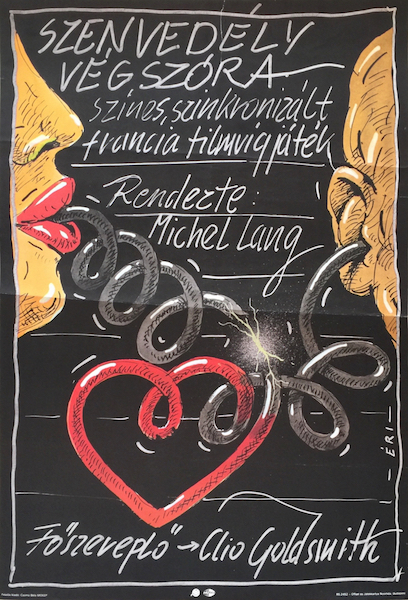 SZENVEDÉLY
VÉGSZÓRA
színes, szinkronizált
francia filmvígjáték
Rendezte:
Michel Lang
- ÉRI -
Főszereplő → Clio Goldsmith